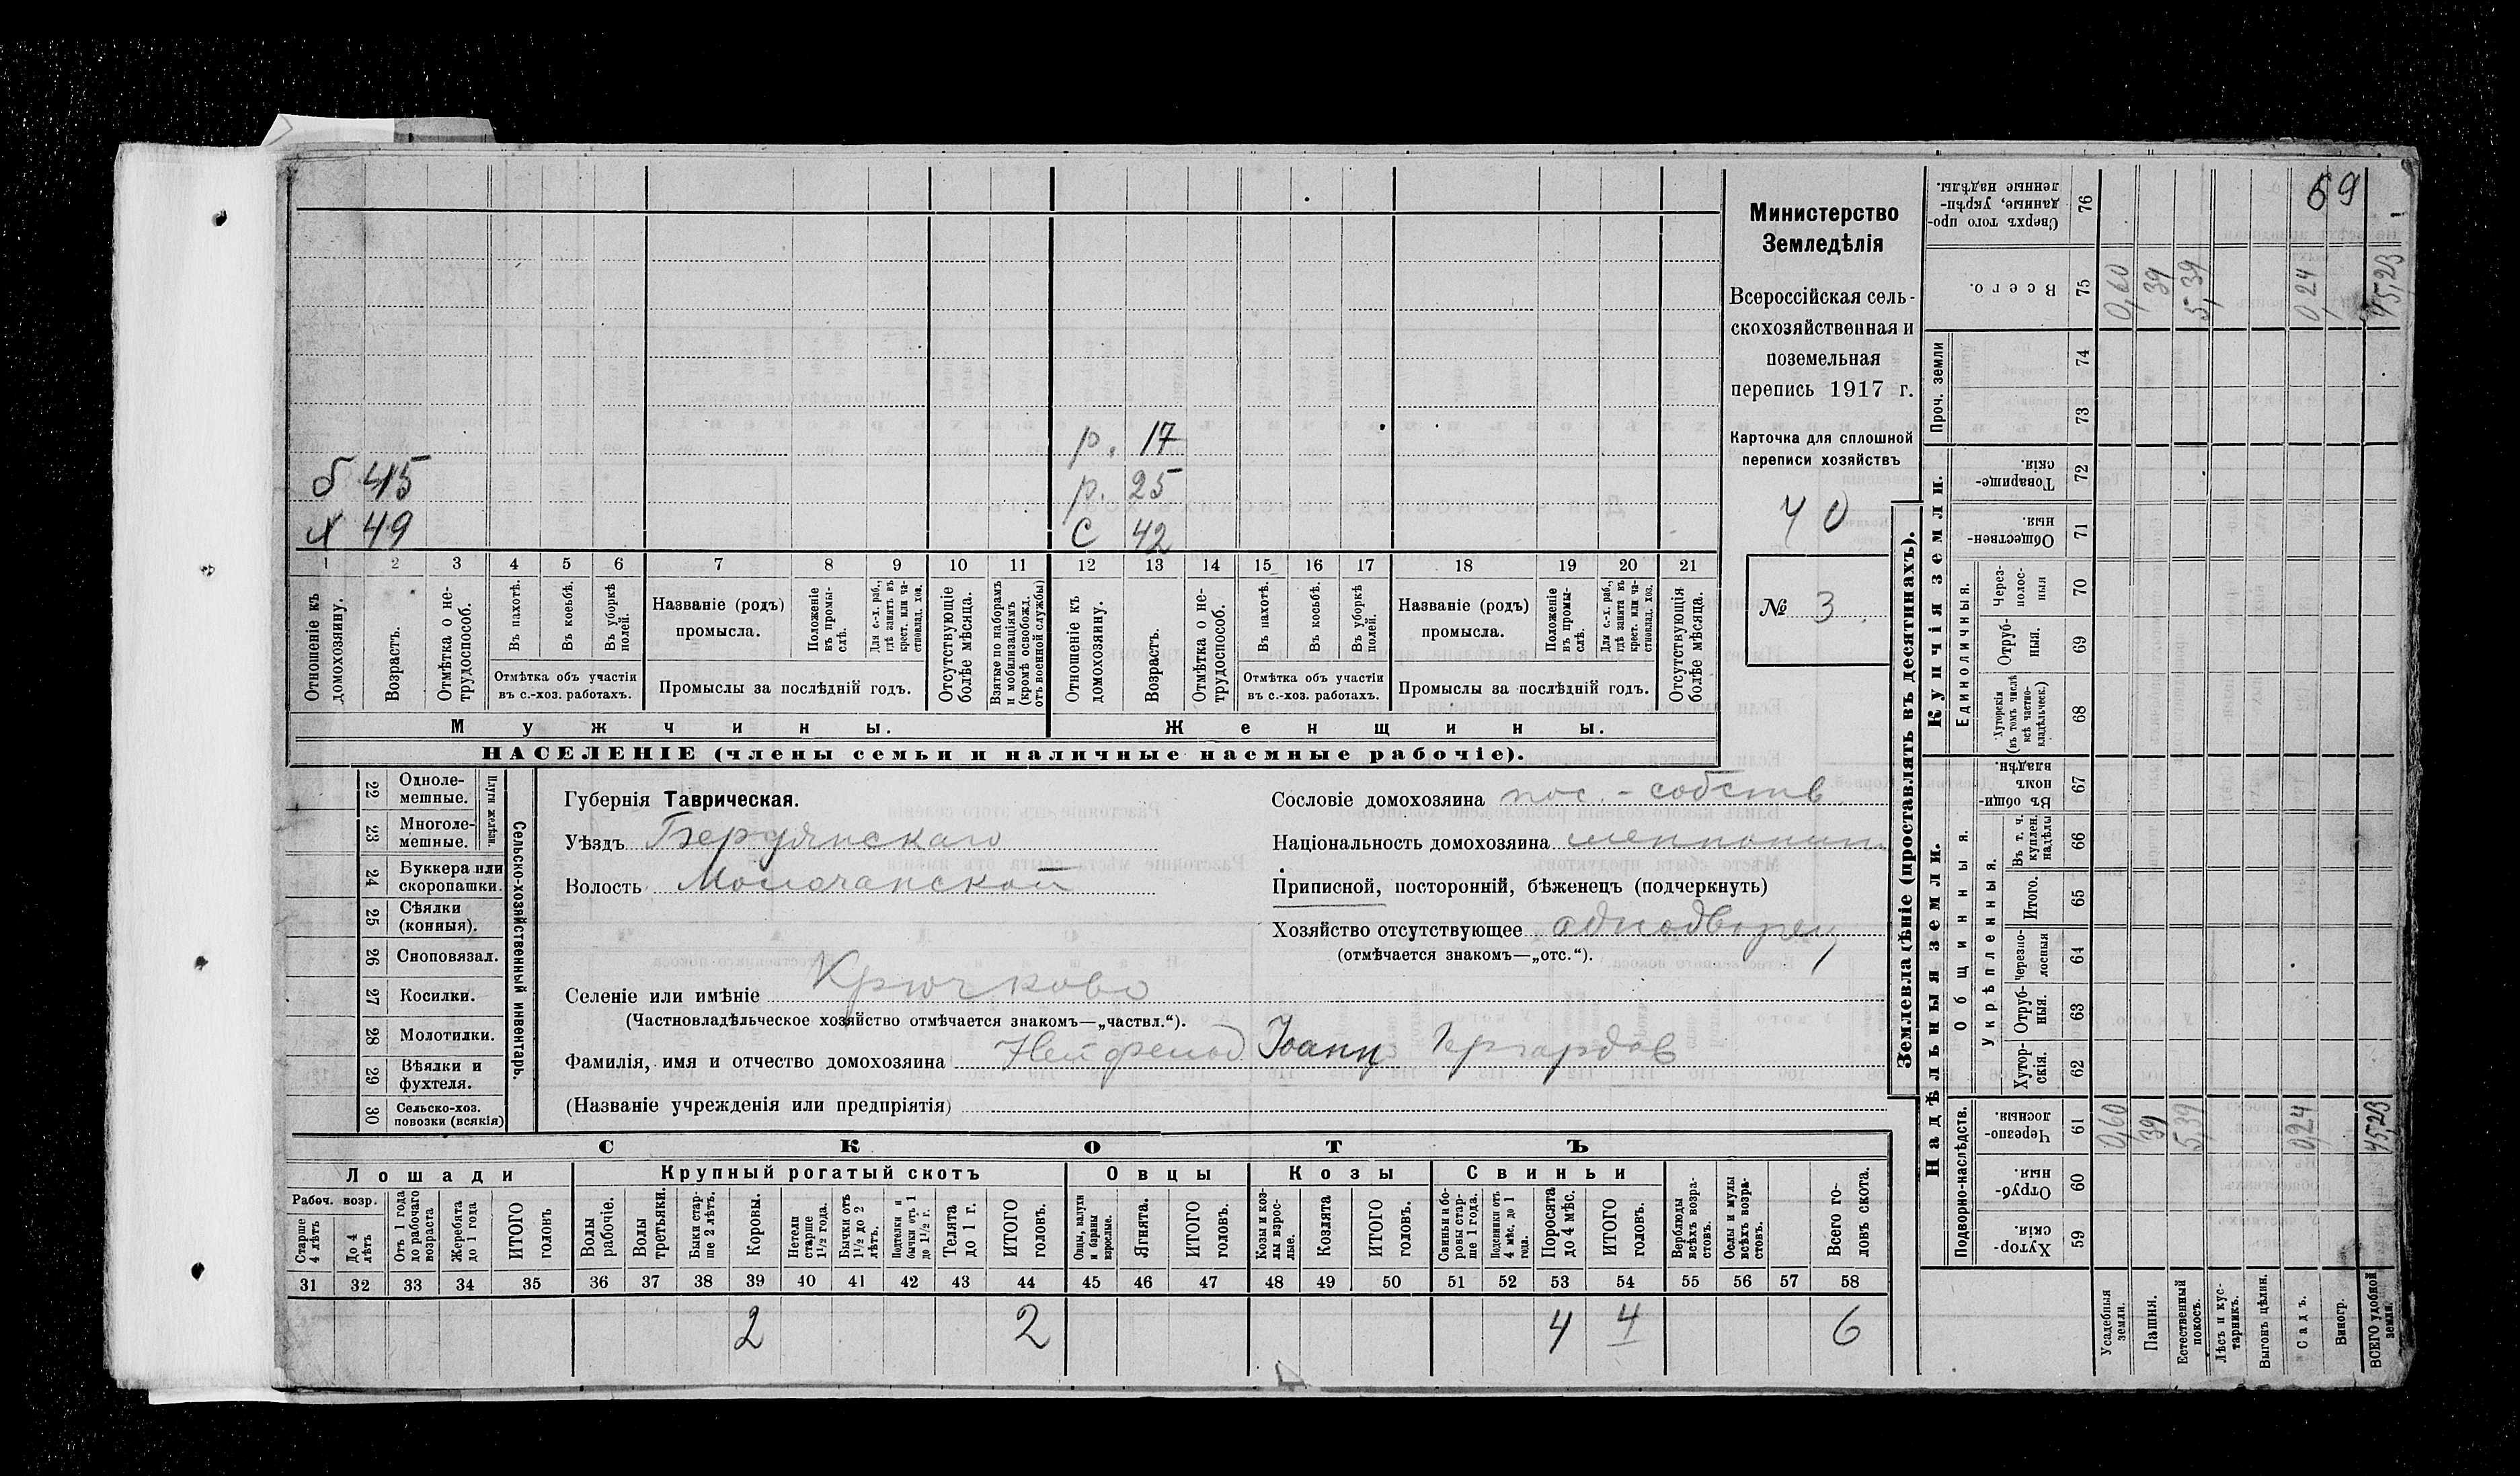 69
р. 17
б 45
р. 25
х 49
С 42
1 2 3 4 5 6 7 8 9 10 11 12 13 14 15 16 17 18 19 20 21
Отношеніе къ домохозяину.
Возрастъ.
Отмѣтка о не-трудоспособ.
Въ пахотѣ.
Въ косьбѣ.
Въ уборкѣ полей.
Отмѣтка объ участіи
въ с.-хоз. работахъ.
Названіе (родъ)
промысла.
Положеніе въ промы-слѣ.
Для с.-х. раб., гдѣ занятъ въ крест. или ча-стновлад. хоз.
Промыслы за послѣдній годъ.
Отсутствующіе болѣе мѣсяца.
Взятые по наборамъ и мобилизаціямъ (кромѣ освобожд. отъ военной службы)
Отношеніе къ домохозяину.
Возрастъ.
Отмѣтка о не-трудоспособ.
Въ пахотѣ.
Въ косьбѣ.
Въ уборкѣ полей.
Отмѣтка объ участіи
въ с.-хоз. работахъ.
Названіе (родъ)
промысла.
Положеніе въ промы-слѣ.
Для с.-х. раб., гдѣ занята въ крест. или ча-стновлад. хоз.
Промыслы за послѣдній годъ.
Отсутствующія болѣе мѣсяца.
Мужчины.
Женщины.
НАСЕЛЕНІЕ (члены семьи и наличные наемные рабочіе).
Министерство
Земледѣлія
Всероссійская сель-
скохозяйственная и
поземельная
перепись 1917 г.
Карточка для сплошной
переписи хозяйствъ
40
№ 3
22 Одноле-мешные.
23 Многоле-мешные.
Плуги желѣзн.
24 Буккера или скоропашки.
25 Сѣялки (конныя).
26 Сноповязал.
27 Косилки.
28 Молотилки.
29 Вѣялки и фухтеля.
30 Сельско-хоз. повозки (всякія)
Сельско-хозяйственный инвентарь.
Губернія Таврическая.
Уѣздъ Бердянскаго
Волость Молочанской
Селеніе или имѣніе Крючково
(Частновладѣльческое хозяйство отмѣчается знакомъ—„частвл.“).
Фамилія, имя и отчество домохозяина Нейфельд Іоанн Гергардов
(Названіе учрежденія или предпріятія)
Сословіе домохозяина пос. - собств
Національность домохозяина меннонит
Приписной, посторонній, бѣженецъ (подчеркнуть)
Хозяйство отсутствующее однодворец
(отмѣчается знакомъ—„отс.“).
СКОТЪ
Лошади
Крупный рогатый скотъ
Овцы
Козы
Свиньи
Рабоч. возр.
Старше 4 лѣтъ
До 4 лѣтъ
Отъ 1 года до рабочаго возраста
Жеребята до 1 года
ИТОГО головъ
Волы рабочіе.
Волы третьяки.
Быки стар-ше 2 лѣтъ.
Коровы.
Нетели старше 1½ года.
Бычки отъ 1½ до 2 лѣтъ.
Подтелки и бычки отъ 1 до 1½ г.
Телята до 1 г.
ИТОГО головъ.
Овцы, валухи и бараны взрослые.
Ягнята.
ИТОГО головъ.
Козы и коз-лы взрос-лые.
Козлята
ИТОГО головъ.
Свиньи и бо-ровы стар-ше 1 года.
Подсвинки отъ 4 мѣс. до 1 года.
Поросята до 4 мѣс.
ИТОГО головъ.
Верблюды всѣхъ возра-стовъ.
Ослы и мулы всѣхъ возра-стовъ.
Всего го-ловъ скота.
31 32 33 34 35 36 37 38 39 40 41 42 43 44 45 46 47 48 49 50 51 52 53 54 55 56 57 58
2 2 4 4 6
Землевладѣніе (проставлять въ десятинахъ).
Надѣльныя земли.
Купчія земли.
Проч. земли
Сверхъ того про-данные, укрѣп-ленные надѣлы.
76
Всего.
75
0,60
39
5,39
0,24
45,23
74
73
Товарище-скія.
72
Обществен-ныя.
71
Единоличныя.
Через-полос-ныя
70
Отруб-ныя.
69
Хуторскія (въ томъ числѣ всѣ частно-владѣльческ.)
68
Въ общи-номъ владѣн.
67
Общинныя.
Укрѣпленныя.
Въ т. ч. куплен. надѣлы
66
Итого.
65
Черезпо-лосныя
64
Отруб-ныя.
63
Хутор-скія.
62
Подворно-наслѣдств.
Черезпо-лосныя.
61
0,60
39
5,39
0,24
45,23
Отруб-ныя.
60
Хутор-скія.
59
Усадебныя земли.
Пашня.
Естественный покосъ.
Лѣсъ и кус-тарникъ.
Выгонъ цѣлин.
Садъ.
Виногр.
ВСЕГО удобной земли.